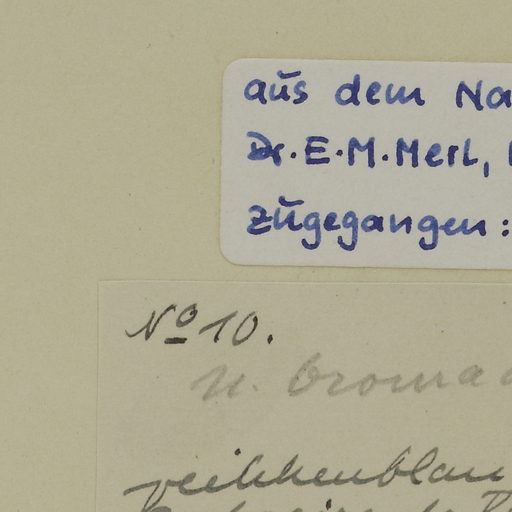 aus dem Na
Dr. E. M. Merl,
zugegangen:
No 10.
veilchenblau